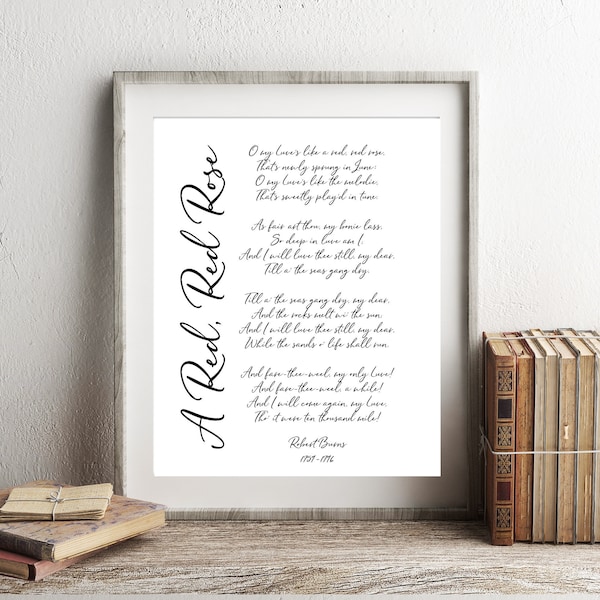 A Red, Red Rose
O my Luve's like a red, red rose,
That's newly sprung in June:
O my Luve's like the melodie,
That's sweetly play'd in tune.
As fair art thou, my bonie lass,
So deep in luve am I,
And I will luve thee still, my dear,
Till a' the seas gang dry.
Till a' the seas gang dry, my dear,
And the rocks melt wi' the sun:
And I will luve thee still, my dear,
While the sands o' life shall run.
And fare-thee-weel, my only Luve!
And fare-thee-weel, a while!
And I will come again, my Luve,
Tho' it were ten thousand mile!
Robert Burns
1759 - 1796